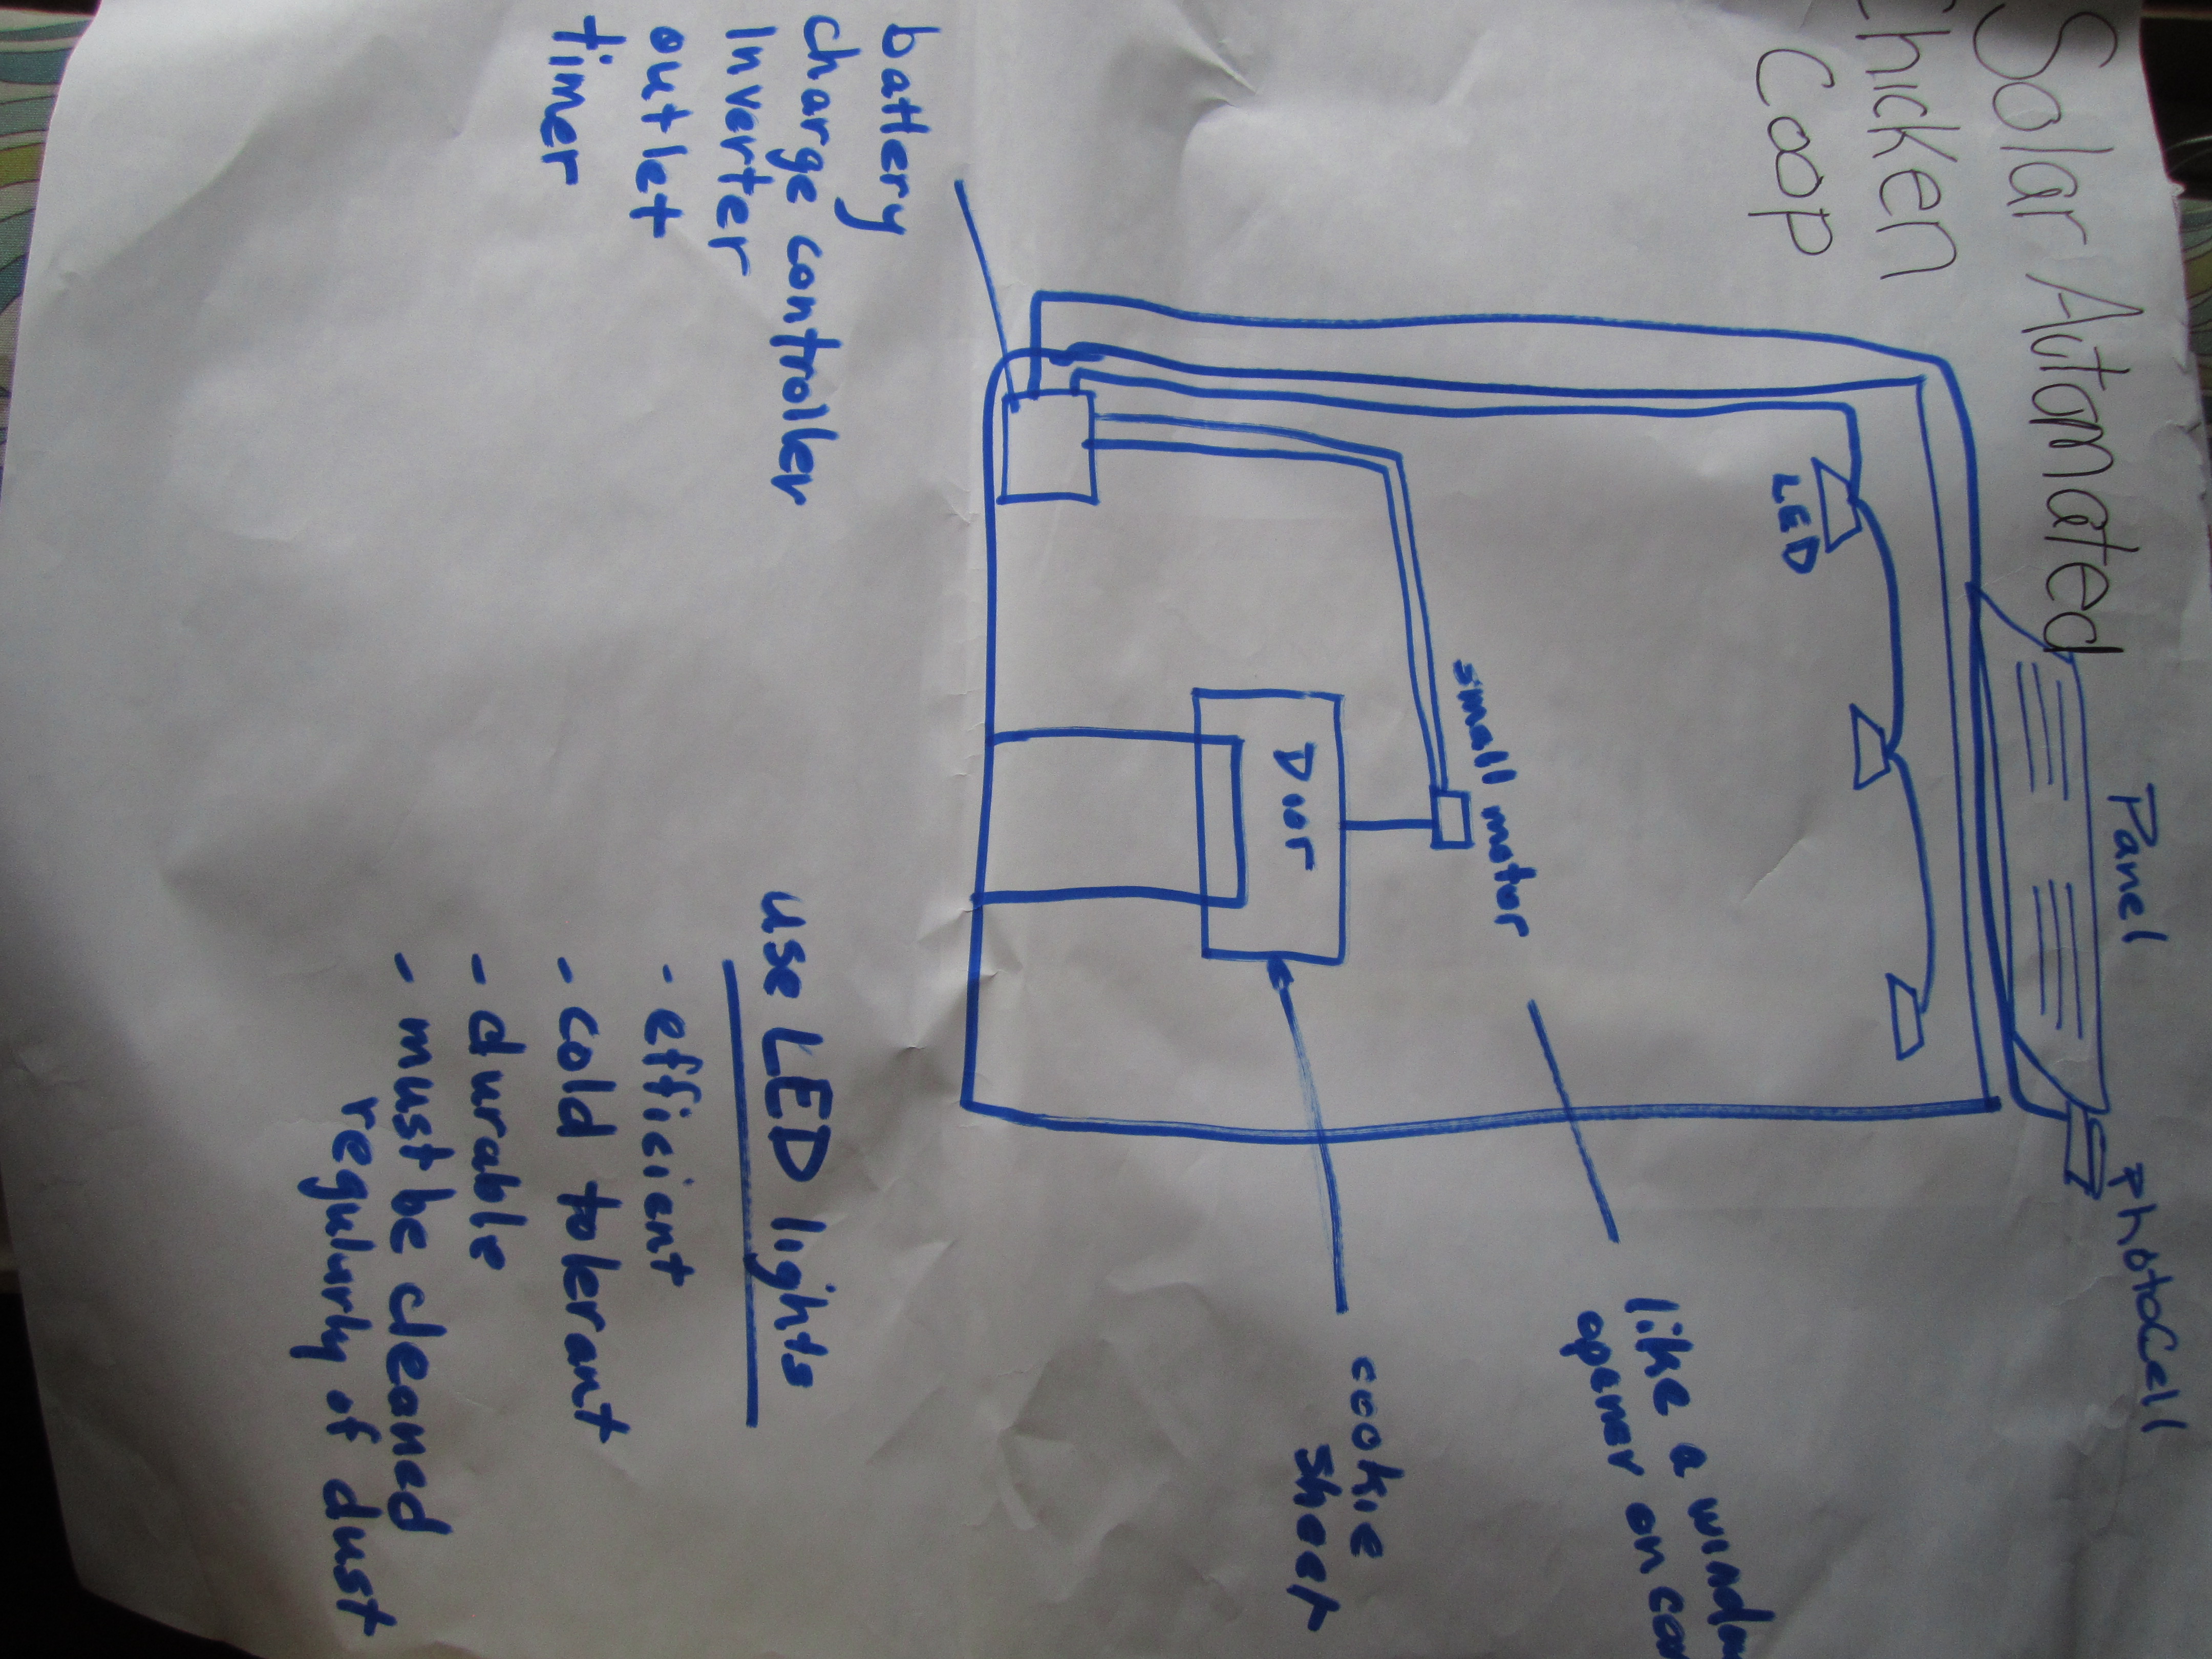 Solar Automated
Chicken
Coop
Panel
Photocell
LED
small motor
like a window
opener on car
Door
cookie
sheet
battery
charge controller
Inverter
outlet
timer
use LED lights
- efficient
- cold tolerant
- durable
- must be cleaned
regulurly of dust